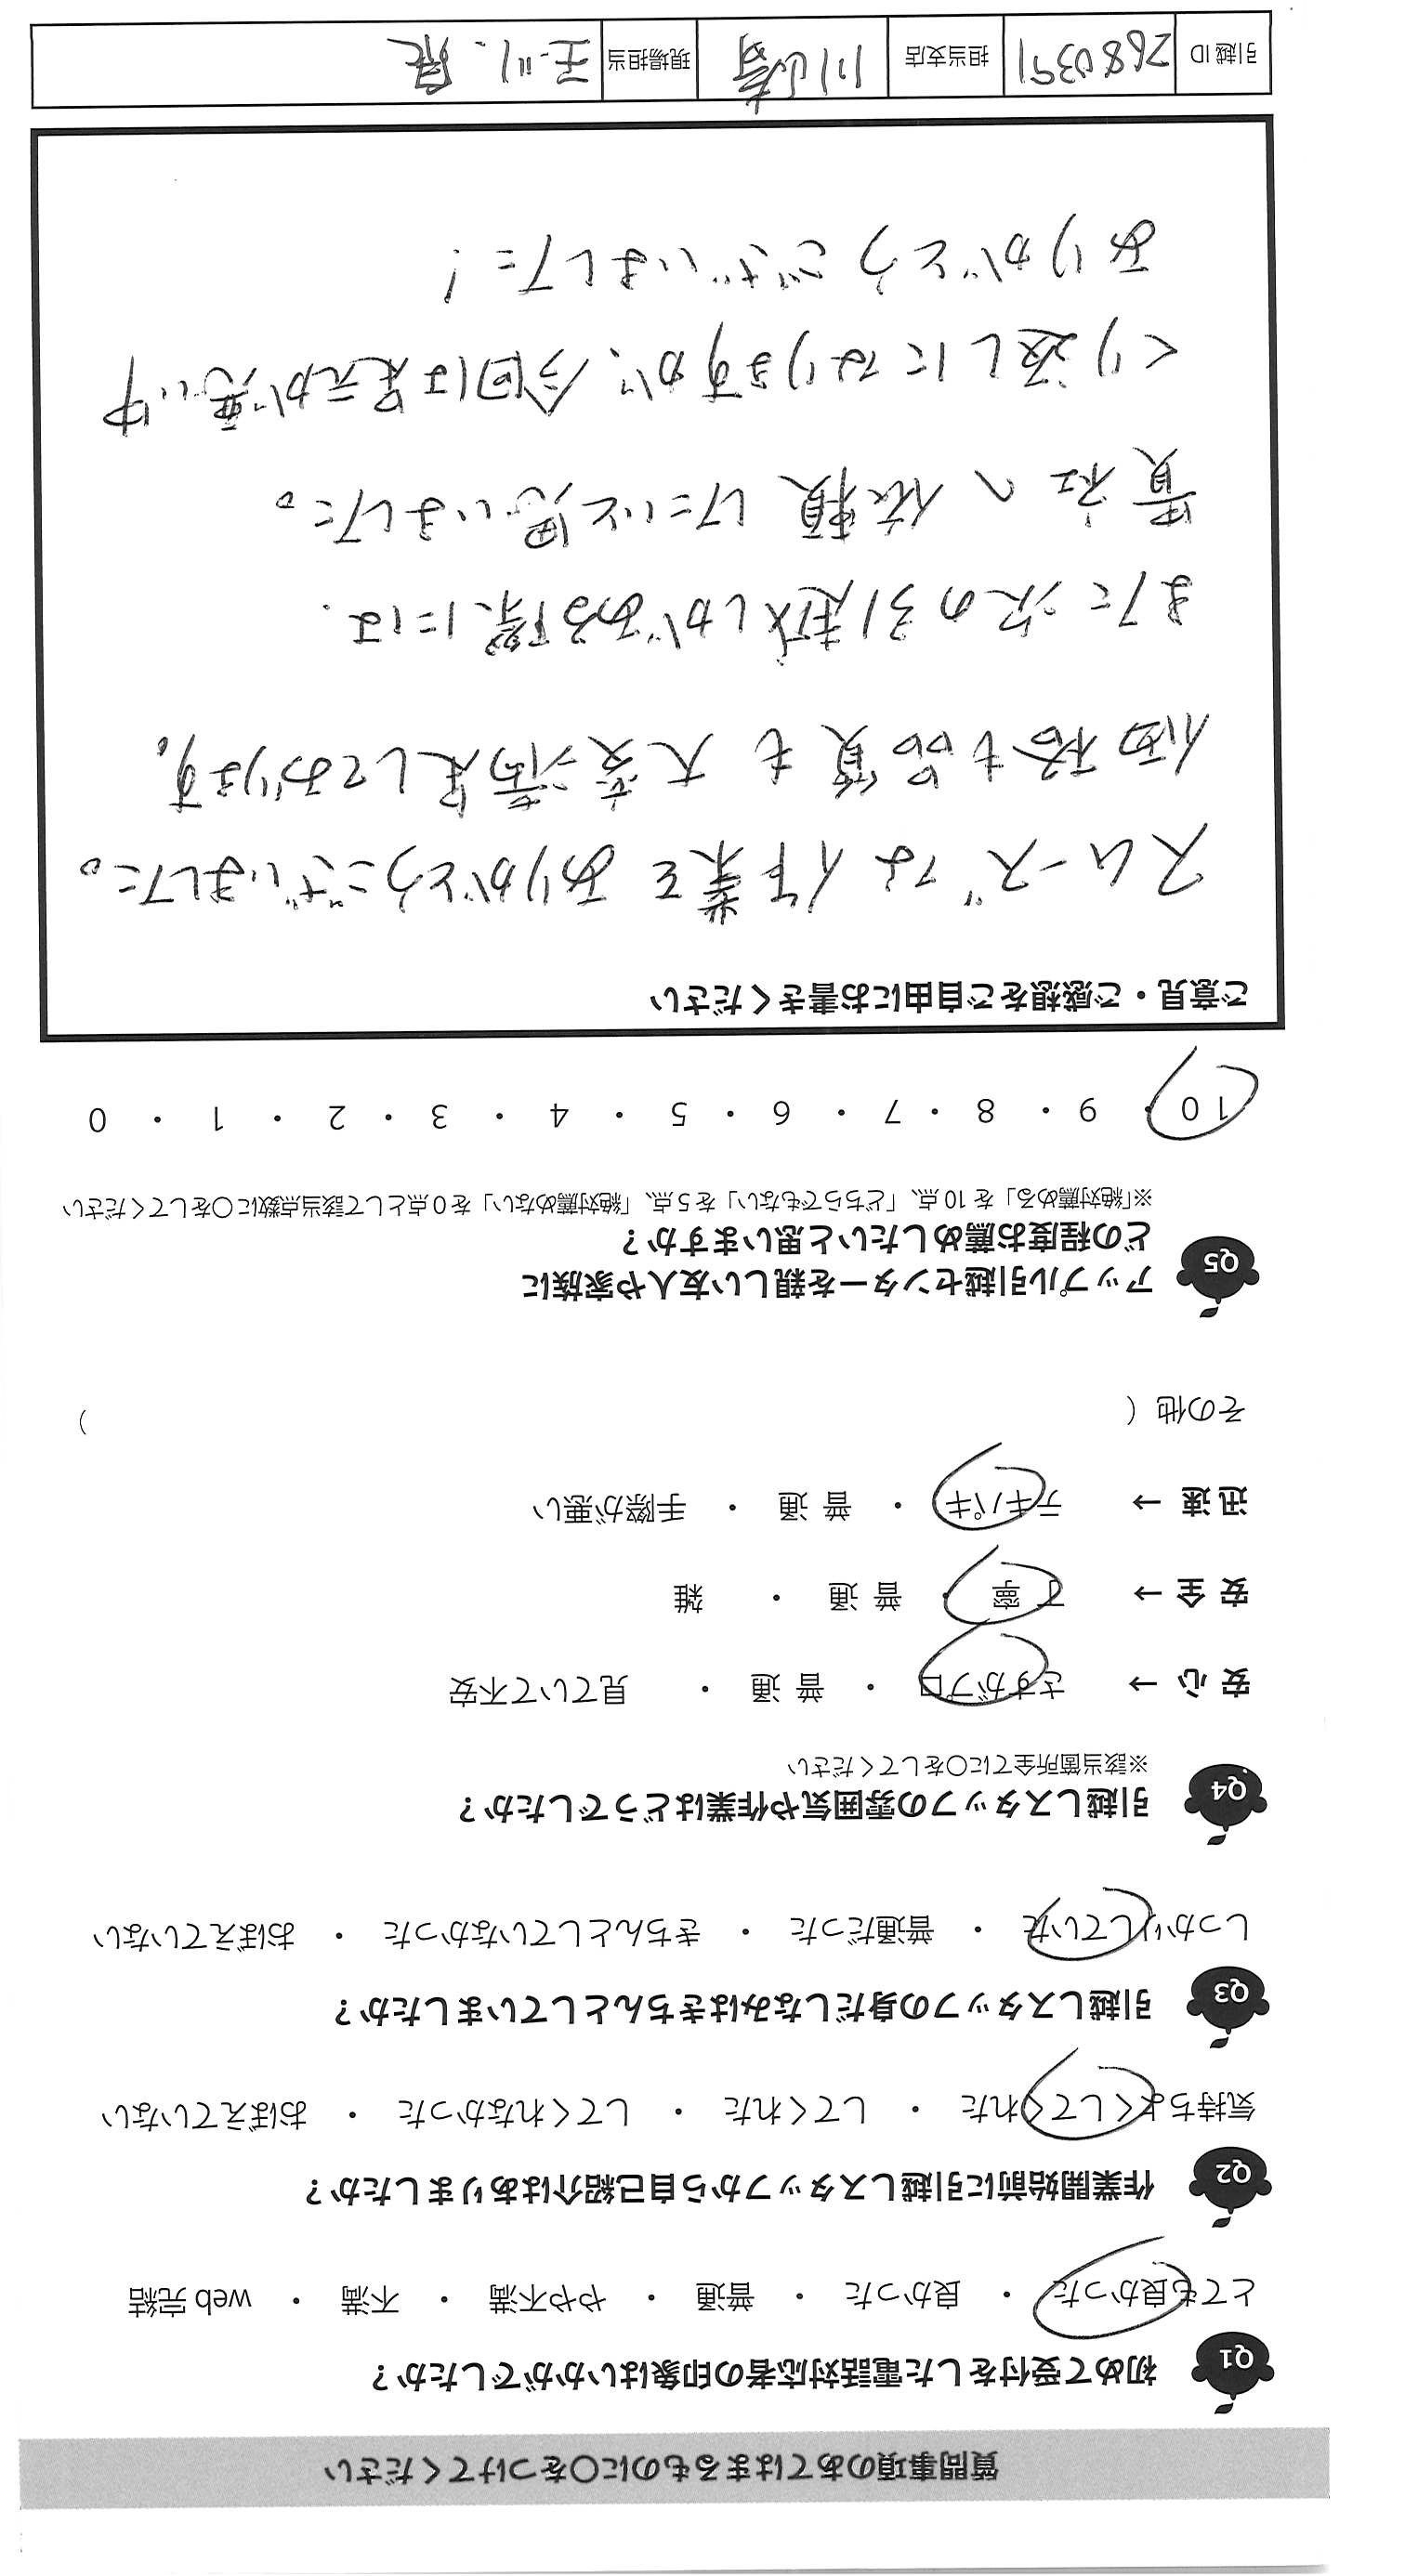 質問事項のあてはまるものに〇をつけてください
Q1 初めて受付をした電話対応者の印象はいかがでしたか？
とても良かった ・ 良かった ・ 普通 ・ やや不満 ・ 不満 ・ web 完結
Q2 作業開始前に引越しスタッフから自己紹介はありましたか？
気持ちよくしてくれた ・ してくれた ・ してくれなかった ・ おぼえていない
Q3 引越しスタッフの身だしなみはきちんとしていましたか？
しっかりしていた ・ 普通だった ・ きちんとしていなかった ・ おぼえていない
Q4 引越しスタッフの雰囲気や作業はどうでしたか？
※該当箇所全てに〇をしてください
安 心 → さすがプロ ・ 普 通 ・ 見ていて不安
安 全 → 丁 寧 ・ 普 通 ・ 雑
迅 速 → テキパキ ・ 普 通 ・ 手際が悪い
その他（ ）
Q5 アップル引越センターを親しい友人や家族に
どの程度お薦めしたいと思いますか？
※「絶対薦める」を 10 点、「どちらでもない」を 5 点、「絶対薦めない」を 0 点として該当点数に〇をしてください
10 ・ 9 ・ 8 ・ 7 ・ 6 ・ 5 ・ 4 ・ 3 ・ 2 ・ 1 ・ 0
ご意見・ご感想をご自由にお書きください
スムーズな作業をありがとうございました。
価格も品質も大変満足しております。
また次の引越しがある際には
貴社へ依頼したいと思いました。
くり返しになりますが、今回は足元が悪い中
ありがとうございました！
引越 ID 2680391 担当支店 川崎 現場担当 玉川、